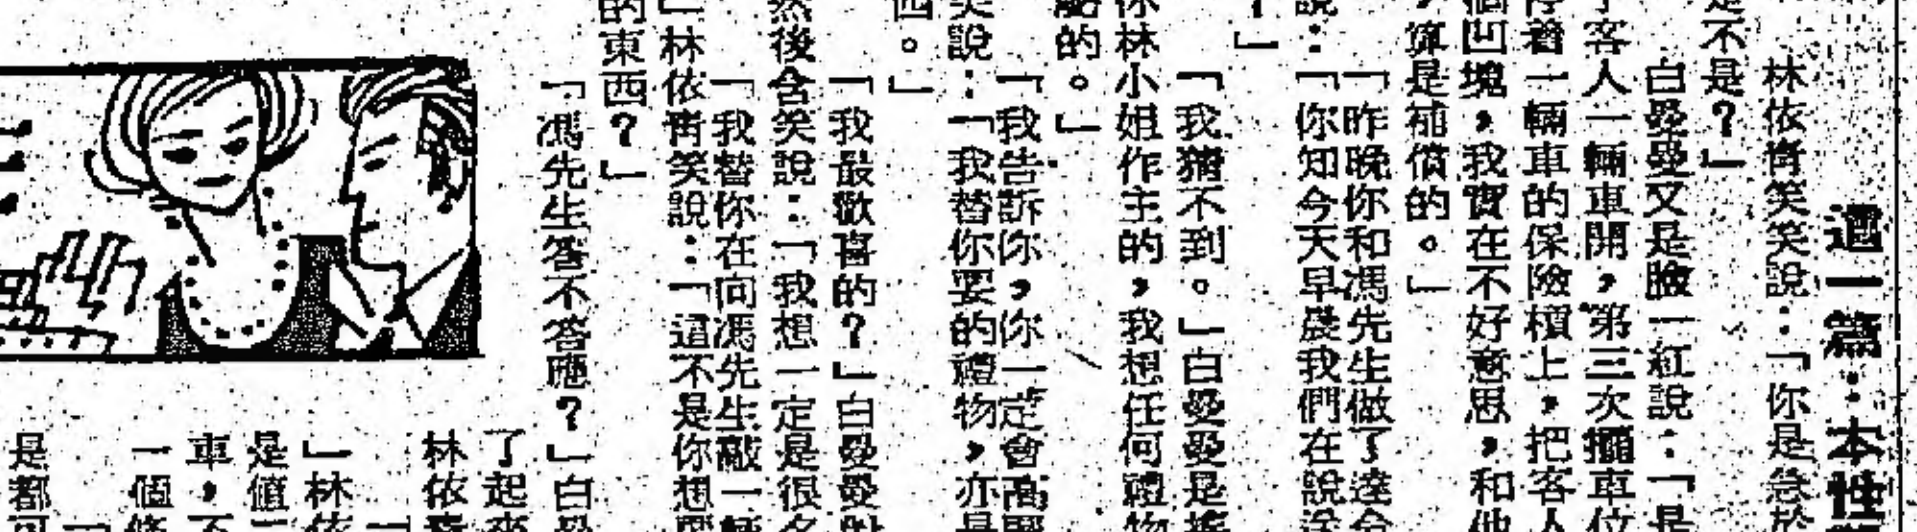 這一篇：本性
林依宵笑笑說：「你是急於
是不是？」
白曼曼又是臉一紅說：「是
客人一輛車開，第三次擺車位
停着一輛車的保險槓上，把客人
個凹塊，我實在不好意思，和他
，算是補償的。」
「昨晚你和馮先生做了
說：「你知今天早晨我們在說
？」
「我猜不到。」白曼曼是搖
你林小姐作主的，我想任何禮物
的。」
「我告訴你，你一定會高興
笑說：「我替你要的禮物，亦是
西。」
「我最歡喜的？」白曼曼的
然後含笑說：「我想一定是很名
「我替你在向馮先生敲一輛
」林依宵笑說：「這不是你想要
的東西？」
「馮先生答不答應？」白曼
了起來
林依宵
」林依
是值一
車，不
一個條
是都可